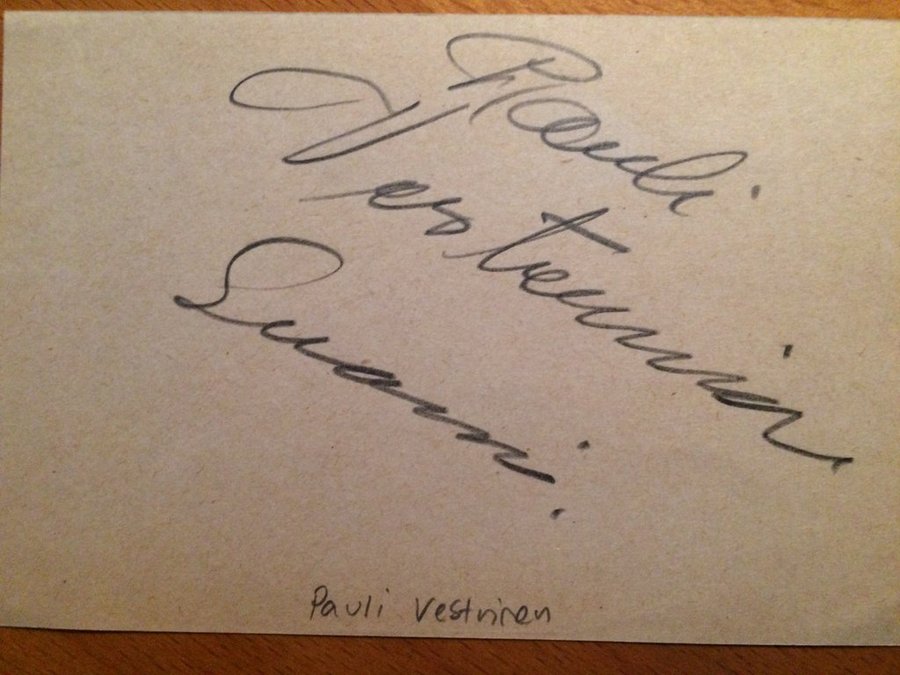 Pauli
Vesterinen
Suomi.
Pauli Vestrinen